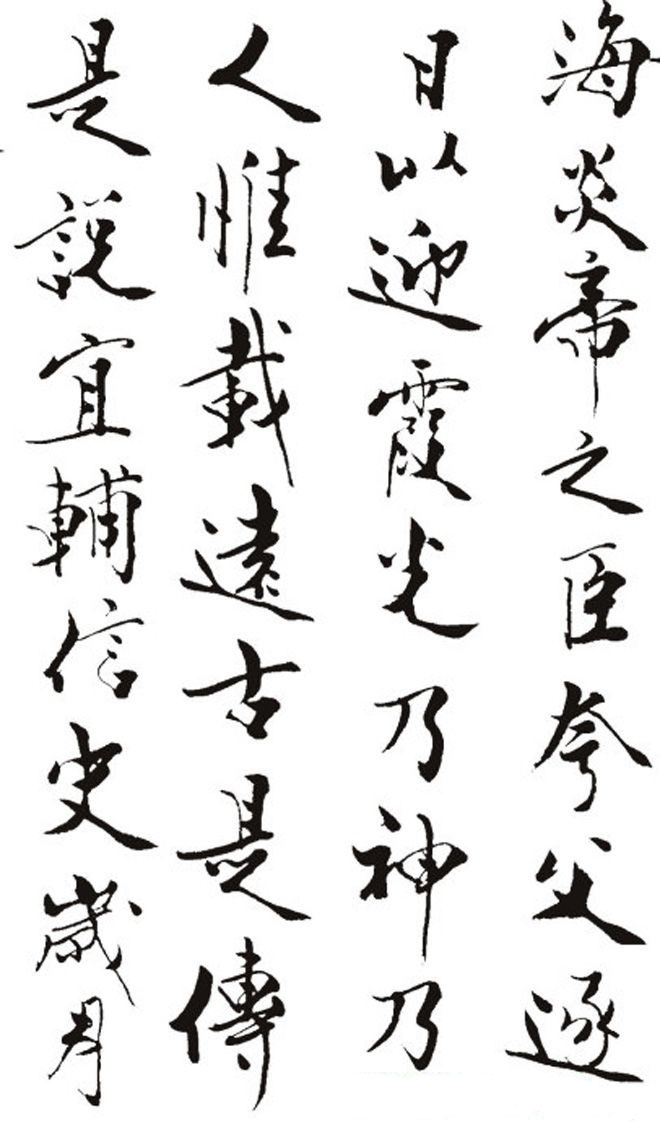 海炎帝之臣夸父逐
日以迎霞光乃神乃
人惟載遠古是傳
是說宜輔信史歲月